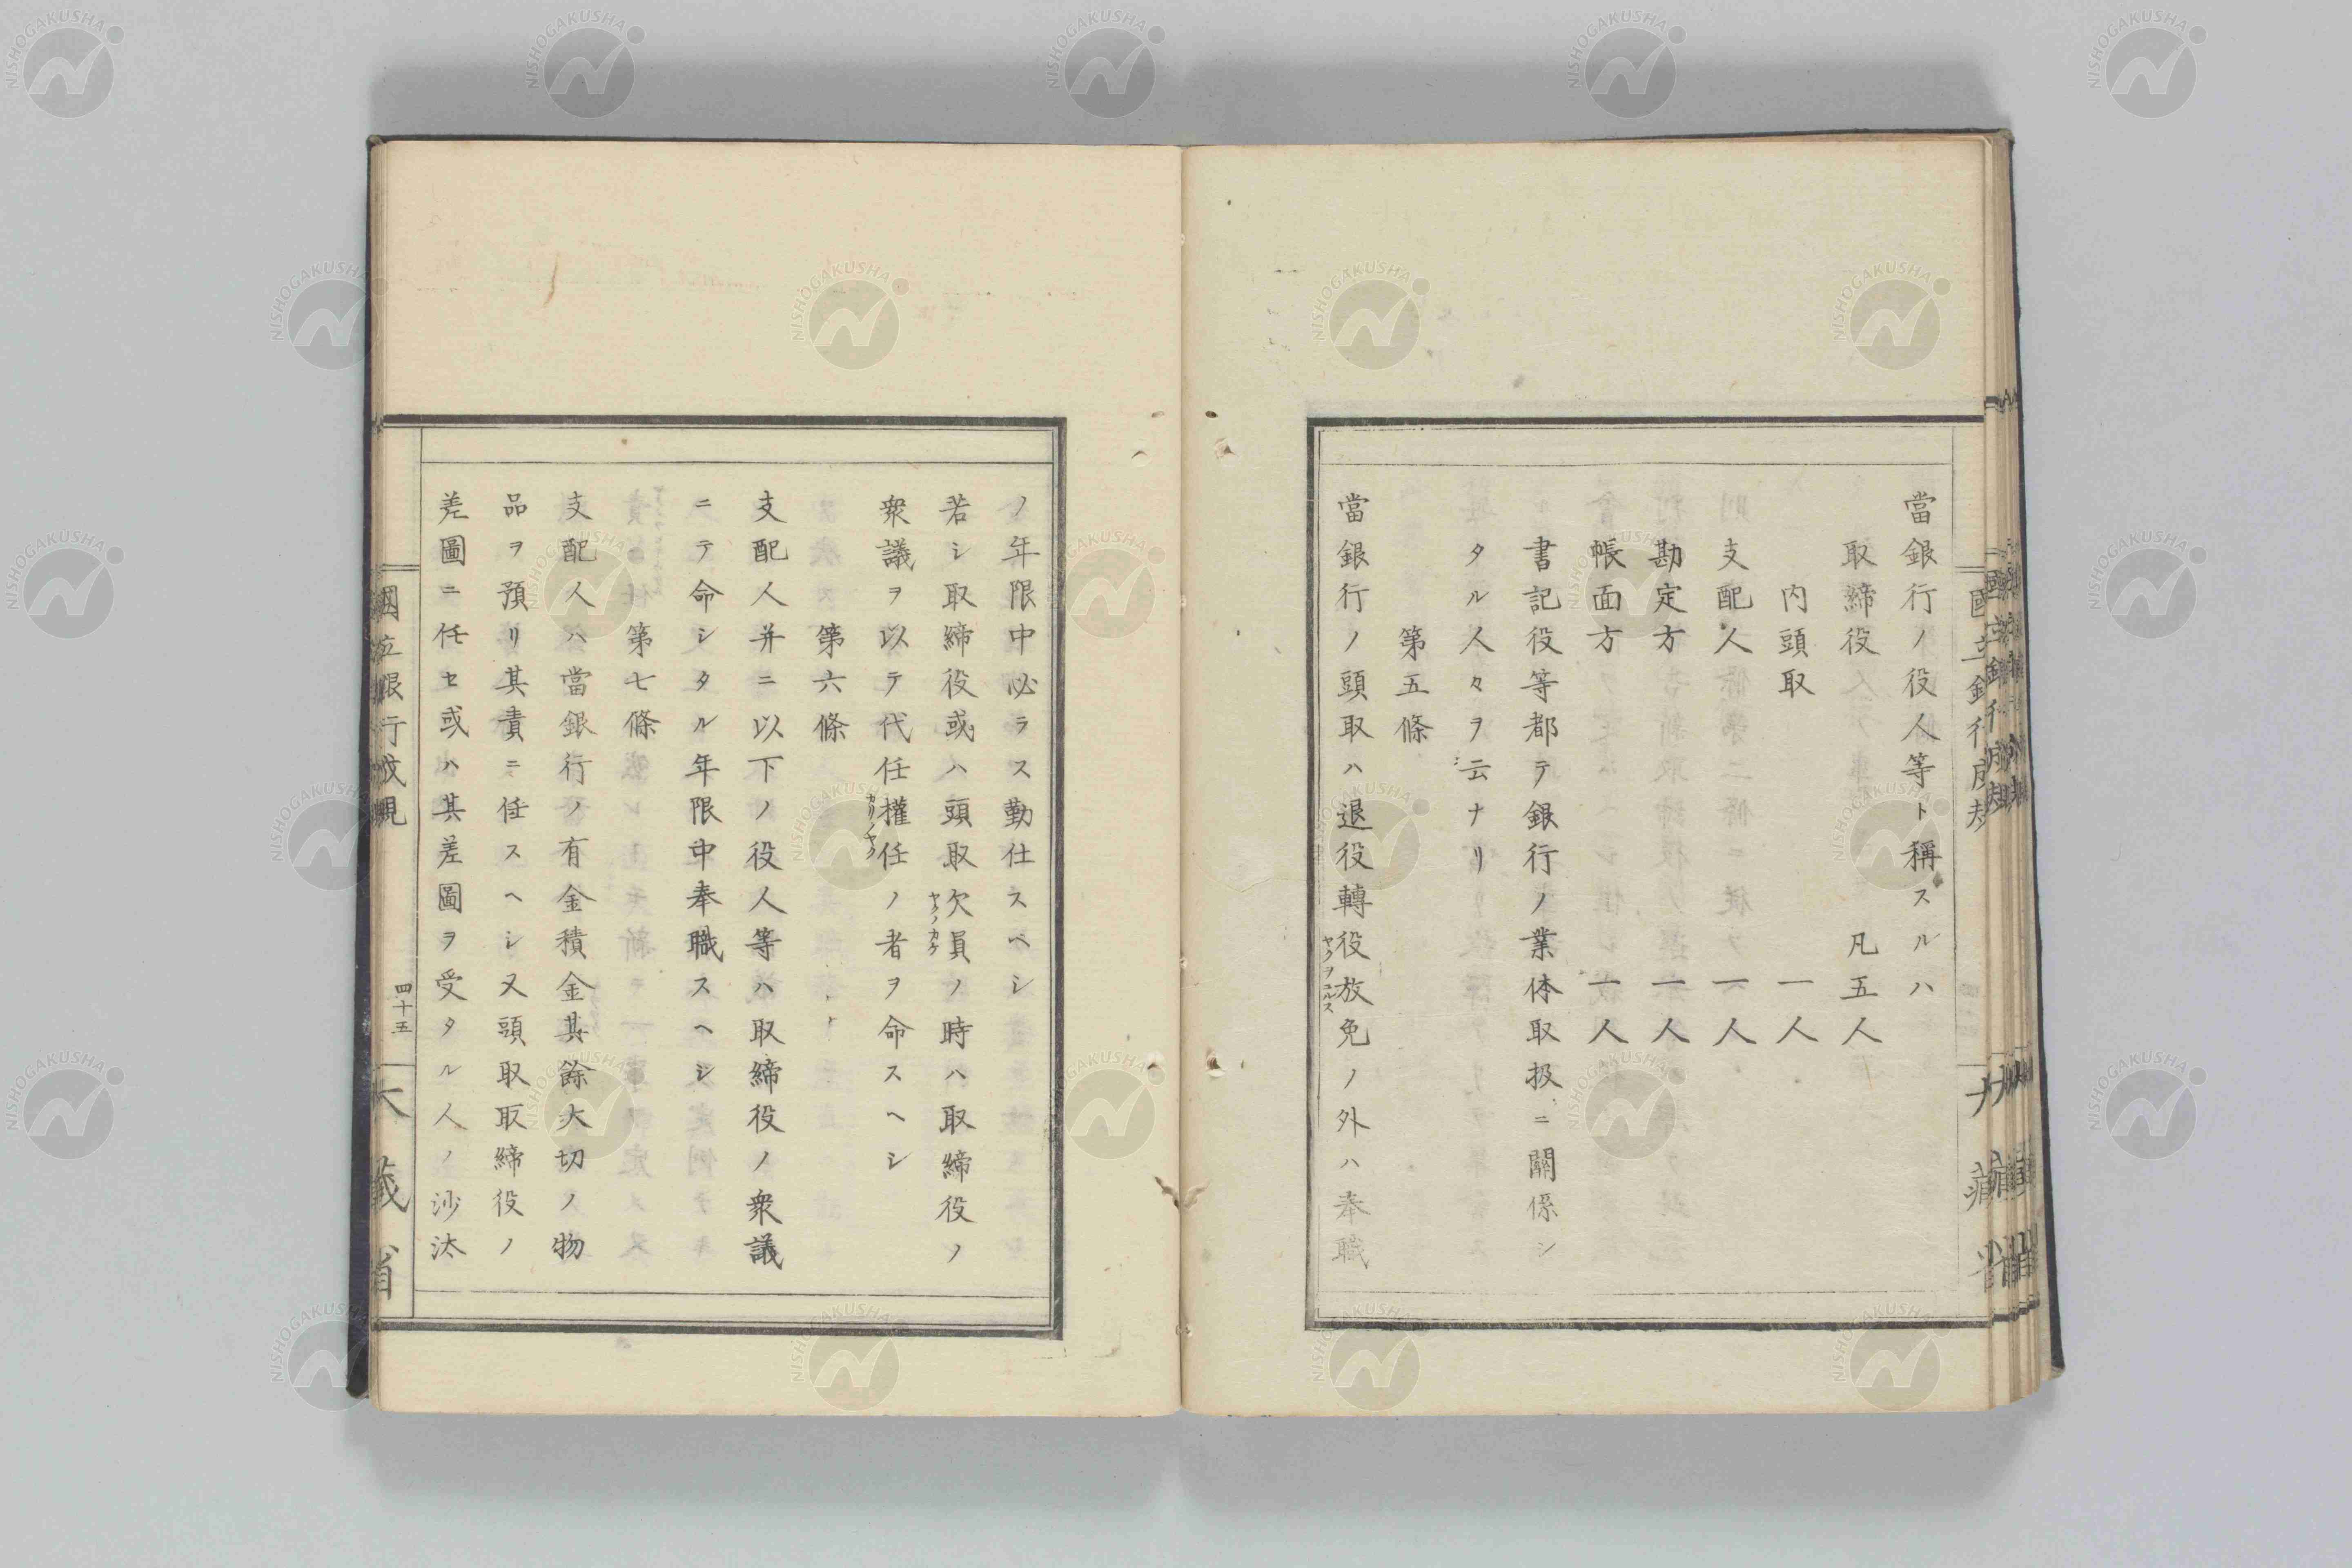 當銀行ノ役人等ト稱スルハ
取締役 凡五人
内頭取 一人
支配人 一人
勘定方 一人
帳面方 一人
書記役等都テ銀行ノ業体取扱ニ關係シ
タル人々ヲ云ナリ
第五條
當銀行ノ頭取ハ退役轉役放免ノ外ハ奉職
ヤクヲユルス
ノ年限中必ラス勤仕スベシ
若シ取締役或ハ頭取欠員ノ時ハ取締役ノ
ヤクノカケ
衆議ヲ以テ代任權任ノ者ヲ命スヘシ
カリノヤク
第六條
支配人并ニ以下ノ役人等ハ取締役ノ衆議
ニテ命シタル年限中奉職スヘシ
第七條
支配人ハ當銀行ノ有金積金其餘大切ノ物
品ヲ預リ其責ニ任スヘシ又頭取取締役ノ
差圖ニ任セ或ハ其差圖ヲ受タル人ノ沙汰
國立銀行成規
四十五
大藏省
NISHOGAKUSHA